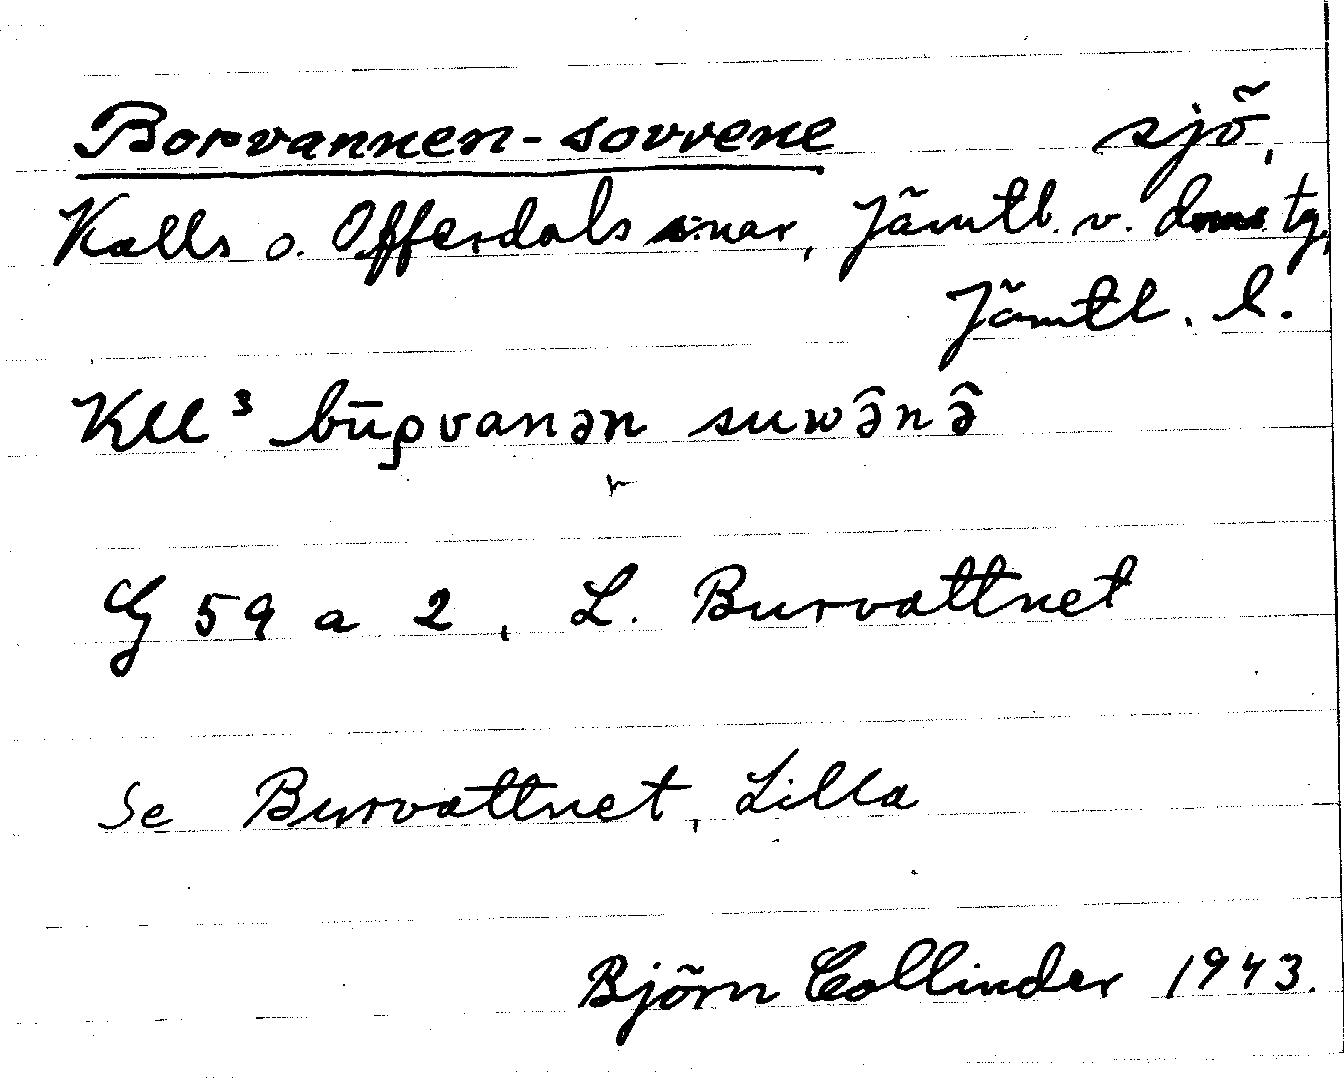 Borvannen-sovvene sjö,
Kalls o. Offerdals snar, Jämtl. v. doms tg,
Jämtl. l.
Kll³ būρvanən suwə̂nə̂
r
G 59 a 2, L. Burvattnet
Se Burvattnet, Lilla
Björn Collinder 1943.